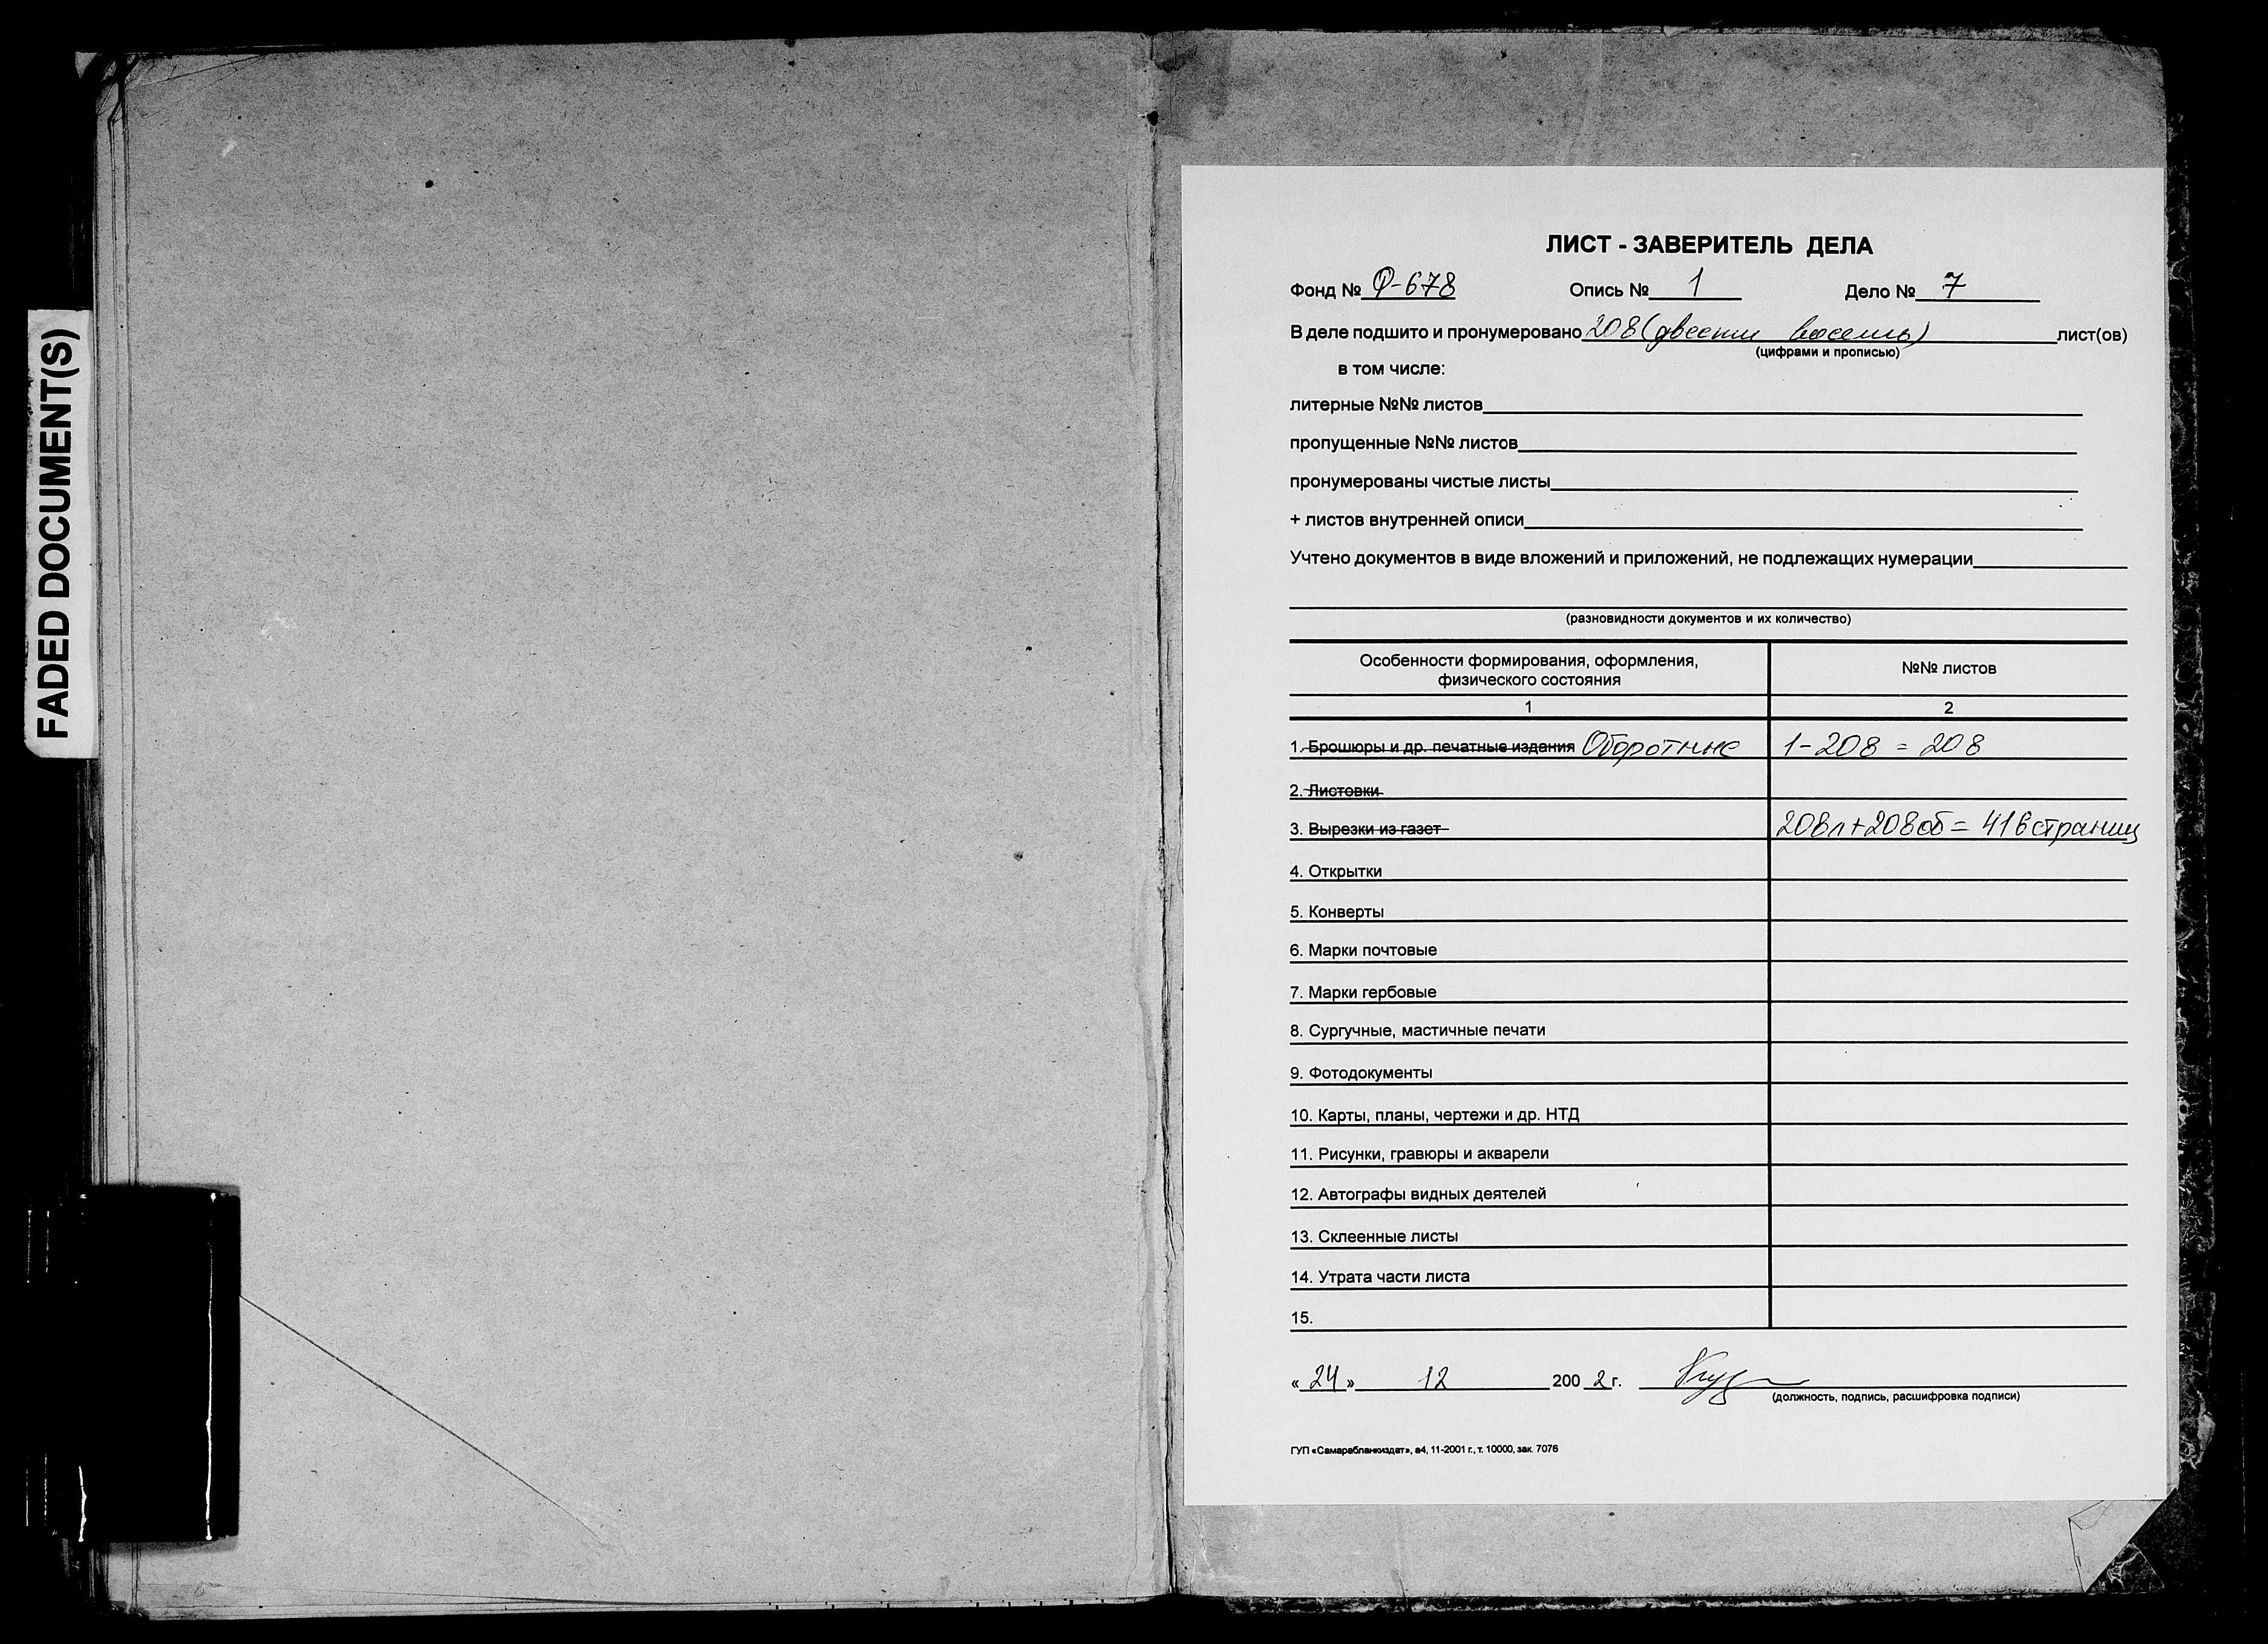 FADED DOCUMENT(S)
ЛИСТ - ЗАВЕРИТЕЛЬ ДЕЛА
Фонд № Ф-678 Опись № 1 Дело № 7
В деле подшито и пронумеровано 208 (двести восемь) лист(ов)
(цифрами и прописью)
в том числе:
литерные №№ листов
пропущенные №№ листов
пронумерованы чистые листы
+ листов внутренней описи
Учтено документов в виде вложений и приложений, не подлежащих нумерации
(разновидности документов и их количество)
Особенности формирования, оформления,
физического состояния
№№ листов
1 2
1. Брошюры и др. печатные издания Оборотные 1-208 = 208
2. Листовки
3. Вырезки из газет 208л+208об = 416 страниц
4. Открытки
5. Конверты
6. Марки почтовые
7. Марки гербовые
8. Сургучные, мастичные печати
9. Фотодокументы
10. Карты, планы, чертежи и др. НТД
11. Рисунки, гравюры и акварели
12. Автографы видных деятелей
13. Склеенные листы
14. Утрата части листа
15.
« 24 » 12 200 2 г.
(должность, подпись, расшифровка подписи)
ГУП «Самарабланкиздат», а4, 11-2001 г., т. 10000, зак. 7076